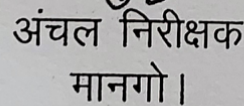 अंचल निरीक्षक
मानगो।